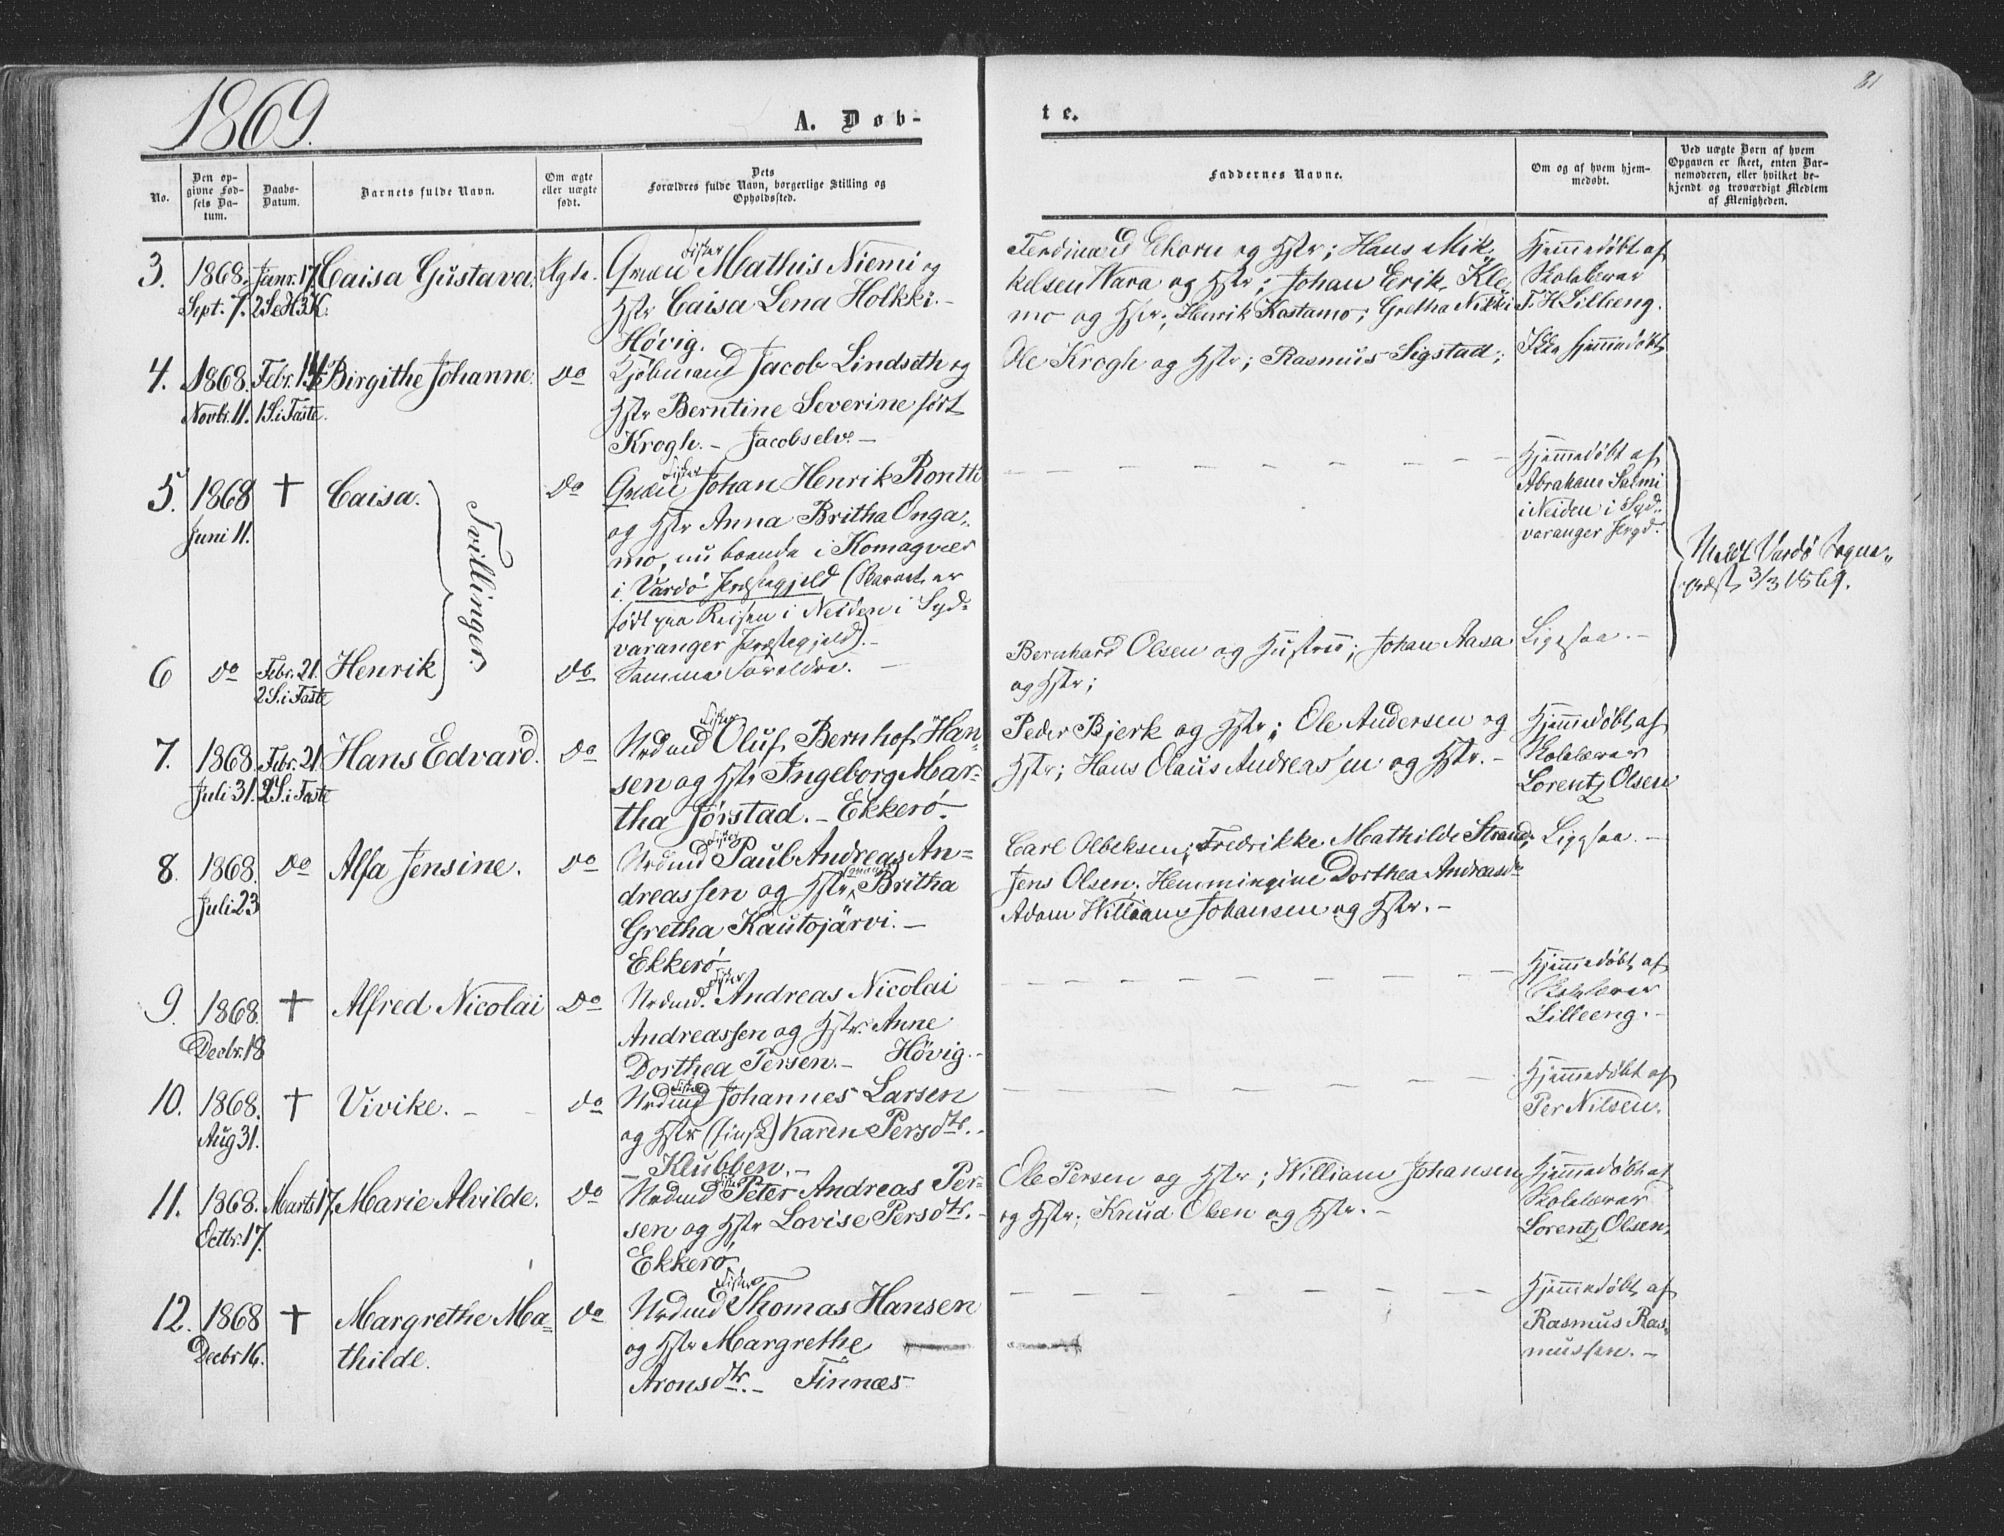 1869.
81
A. Døb-
te.
No.
Den op-
givne Fød-
sels Da-
tum.
Daabs-
Datum.
Barnets fulde Navn.
Om ægte
eller uægte
født.
Dets
Forældres fulde Navn, borgerlige Stilling og
Opholdssted.
Faddernes Navne.
Om og af hvem hjem-
medøbt.
Ved uægte Børn af hvem
Opgaven er skeet, enten Bar-
nemoderen, eller hvilket be-
kjendt og troværdigt Medlem
af Menigheden.
3.
1868.
Sept. 7.
Janr. 17.
2 S. e. H3K.
Caisa Gustava.
Ægte.
Qvæn Fisker Mathis Niemi og
Hstr Caisa Lena Holkki. –
Høvig.
Ferdinand Ekorn og Hstr; Hans Mik-
kelsen Wara og Hstr; Johan Erik Kle-
mo og Hstr; Henrik Kostamo; Gretha Nikki
Hjemmedøbt af
Skolelærer
T. H. Lilleeng.
4.
1868.
Novbr. 11.
Febr. 14.
1 S. i Faste.
Birgithe Johanne.
do
Kjøbmand Jacob Lindseth og
Hstr Berntine Severine født
Krogh. – Jacobselv. –
Ole Krogh og Hstr; Rasmus Sigstad;
Ikke hjemmedøbt
5.
1868
Juni 11.
†
Caisa.
Tvillinger.
do
Qvæn Fisker Johan Henrik Rontti
og Hstr Anna Britha Onga-
mo, nu boende i Komagvær
i Vardø Præstegjeld (Barnet er
født paa Reisen i Neiden i Syd-
varanger Præstegjeld). –
Hjemmedøbt af
Abraham Salmi
i Neiden i Syd-
varanger Prgd.
Meldt Vardø Sogne-
præst 3/3 1869.
6
do
Febr. 21.
2 S. i Faste
Henrik
do
Samme Forældre. –
Bernhard Olsen og Hustru; Johan Aasa
og Hstr;
Ligesaa. –
7.
1868.
Juli 31.
Febr. 21.
2 S. i Faste
Hans Edvard.
do
Nrdmd Fisker Oluf Bernhof Han-
sen og Hstr Ingeborg Mar-
tha Jørstad. – Ekkerø.
Peder Bjerk og Hstr; Ole Andersen og
Hstr; Hans Olaus Andreas'n og Hstr. –
Hjemmedøbt af
Skolelærer
Lorentz Olsen
8.
1868.
Juli 23
do
Alfa Jensine.
do
Nrdmd Fisker Paul Andreas An-
dreassen og Hstr (qvæn) Britha
Gretha Kautojärvi. –
Ekkerø
Carl Olbeksen; Fredrikke Mathilde Strand;
Jens Olsen; Hemmingine Dorthea Andreasdr
Adam William Johansen og Hstr. –
Ligesaa. –
9.
1868.
Decbr. 18
†
Alfred Nicolai
do
Nrdmd. Fisker Andreas Nicolai
Andreassen og Hstr. Anne
Dorthea Persen. – Høvig. –
Hjemmedøbt af
Skolelærer
Lilleeng. –
10.
1868.
Aug 31.
†
Vivike. –
do
Nrdmd Fisker Johannes Larsen
og Hstr (finsk) Karen Persdtr. –
– Klubben. –
Hjemmedøbt af
Per Nilsen.
11.
1868.
Octbr. 17.
Marts 17.
Marie Alvilde.
do
Nrdmd Fisker Peter Andreas Per-
sen og Hstr Lovise Persdtr. –
Ekkerø
Ole Persen og Hstr; William Johansen
og Hstr; Knud Olsen og Hstr. –
Hjemmedøbt af
Skolelærer
Lorentz Olsen.
12.
1868
Decbr 16.
†
Margrethe Ma-
thilde.
do
Nrdmd Fisker Thomas Hansen
og Hstr Margrethe
Aronsdtr. – Finnæs
Hjemmedøbt af
Rasmus Ras-
mussen. –